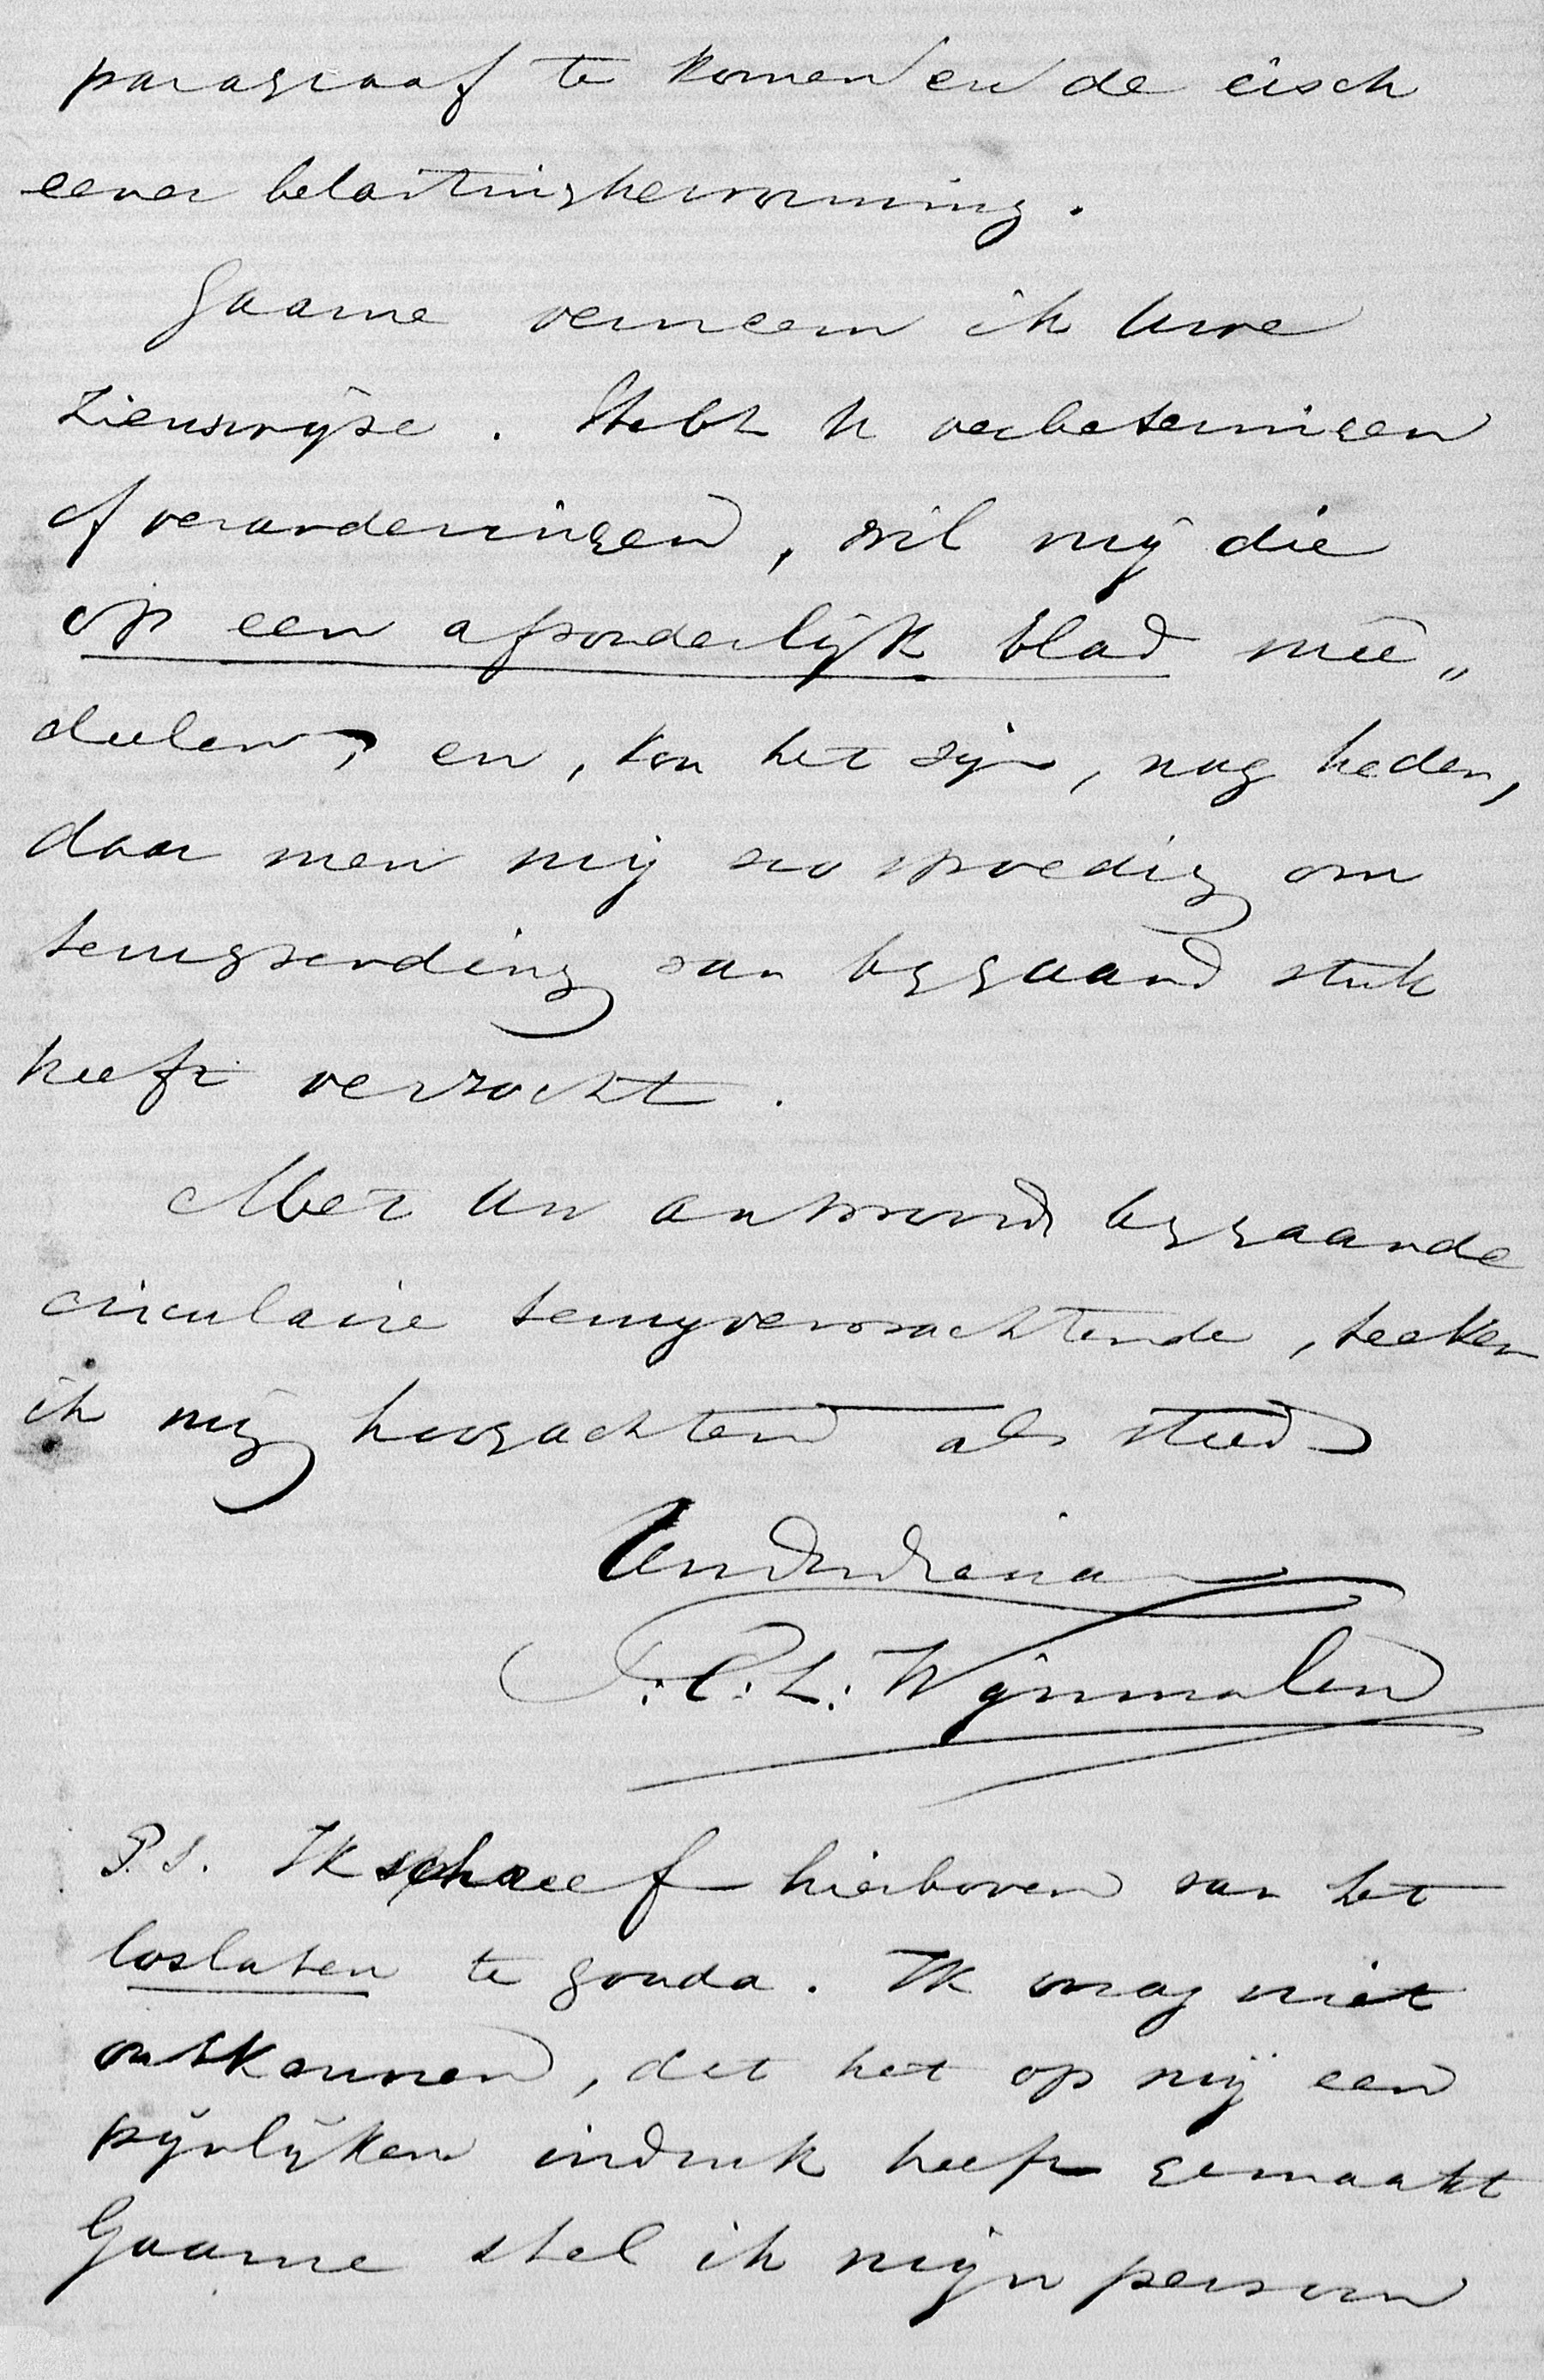 paragraaf te komen en de eisch
eener belastinghervorming.
Gaarne verneem ik Uwe
zienswijze. Hebt U verbeteringen
of veranderingen, wil mij die
op een afzonderlijk blad mee„
deelen, en, kon het zijn, nog heden,
daar men mij zoo spoedig om
terugzending van bijgaand stuk
heeft verzocht.
Met Uw antwoord bijgaande
circulaire terugverwachtende, teeken
ik mij hoogachtend als steeds
UwDwDienaar
T.C.L. Wijnmalen
P.S. Ik schreef hierboven van het
loslaten te Gouda. Ik mag niet
ontkennen, dat het op mij een
pijnlijken indruk heeft gemaakt
Gaarne stel ik mijn persoon